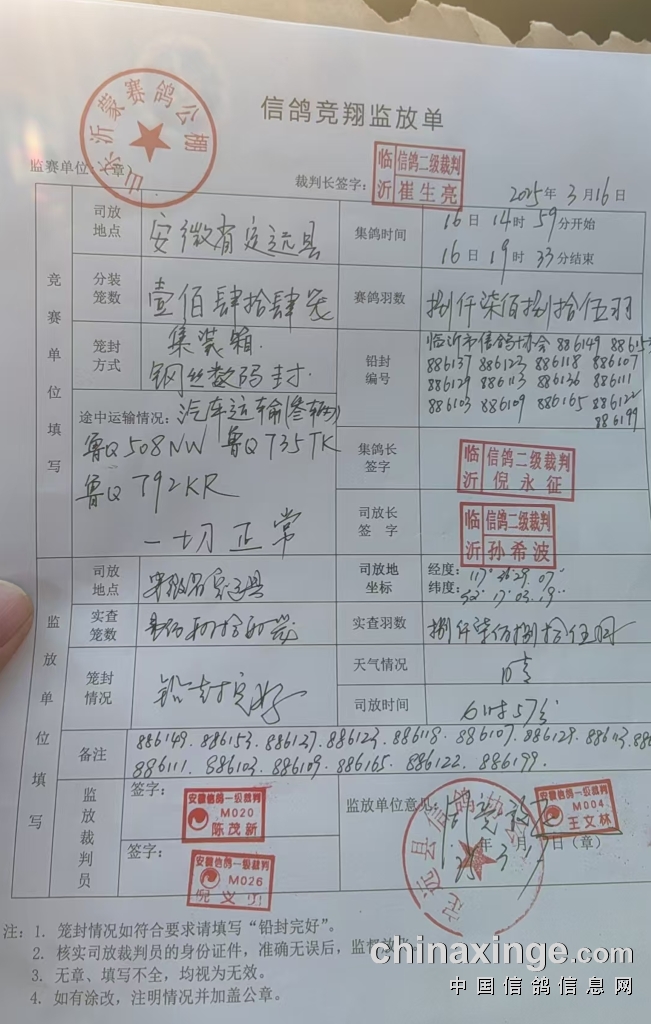 信鸽竞翔监放单
山东沂蒙赛鸽公棚
监赛单位:(章)
裁判长签字:
临沂 信鸽二级裁判 崔生亮
2025年3月16日
司放地点 安徽省定远县
集鸽时间 16日14时59分开始
16日19时33分结束
竞赛单位填写
分装笼数 壹佰肆拾肆笼
赛鸽羽数 捌仟柒佰捌拾伍羽
笼封方式 集装箱.
钢丝数码封.
铅封编号 临沂市信鸽协会 886149 886153
886137 886123 886118 886107
886129 886113 886136 886111
886103 886109 886165 886122
886199
途中运输情况: 汽车运输(叁辆)
鲁Q508NW 鲁Q735TK
鲁Q792KR
一切正常
集鸽长签字
临沂 信鸽二级裁判 倪永征
司放长签字
临沂 信鸽二级裁判 孙希波
监放单位填写
司放地点 安徽省定远县
司放地坐标 经度:
纬度:
实查笼数
实查羽数 捌仟柒佰捌拾伍羽
笼封情况 铅封完好
天气情况 晴
司放时间 6时57分
备注 886149. 886153. 886137. 886123. 886118. 886107. 886129. 886113.
886111. 886103. 886109. 886165. 886122. 886199.
监放裁判员
签字:
安徽信鸽一级裁判 M020 陈茂新
签字:
安徽信鸽一级裁判 M026
监放单位意见:
同意放飞
安徽信鸽一级裁判 M004 王文林
定远县信鸽协会
年 月 日(章)
注: 1. 笼封情况如符合要求请填写“铅封完好”。
2. 核实司放裁判员的身份证件,准确无误后,监督放
3. 无章、填写不全,均视为无效。
4. 如有涂改,注明情况并加盖公章。
chinaxinge.com
中国信鸽信息网